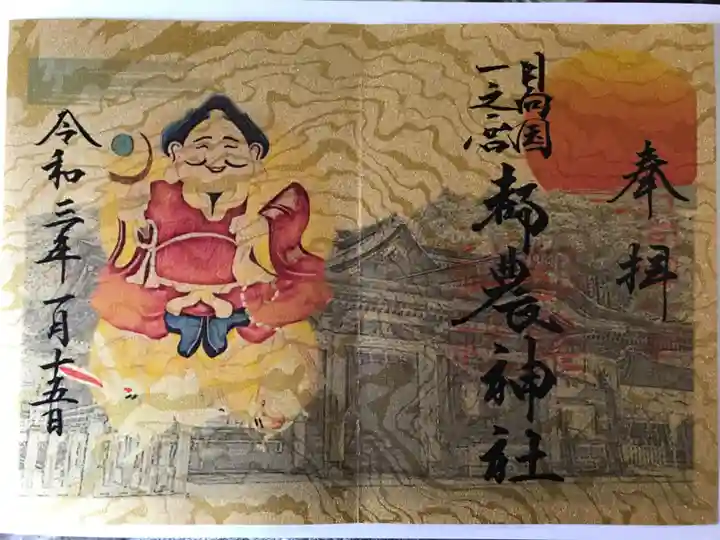 奉拝
日向国
一之宮
都農神社
令和三年一月十五日